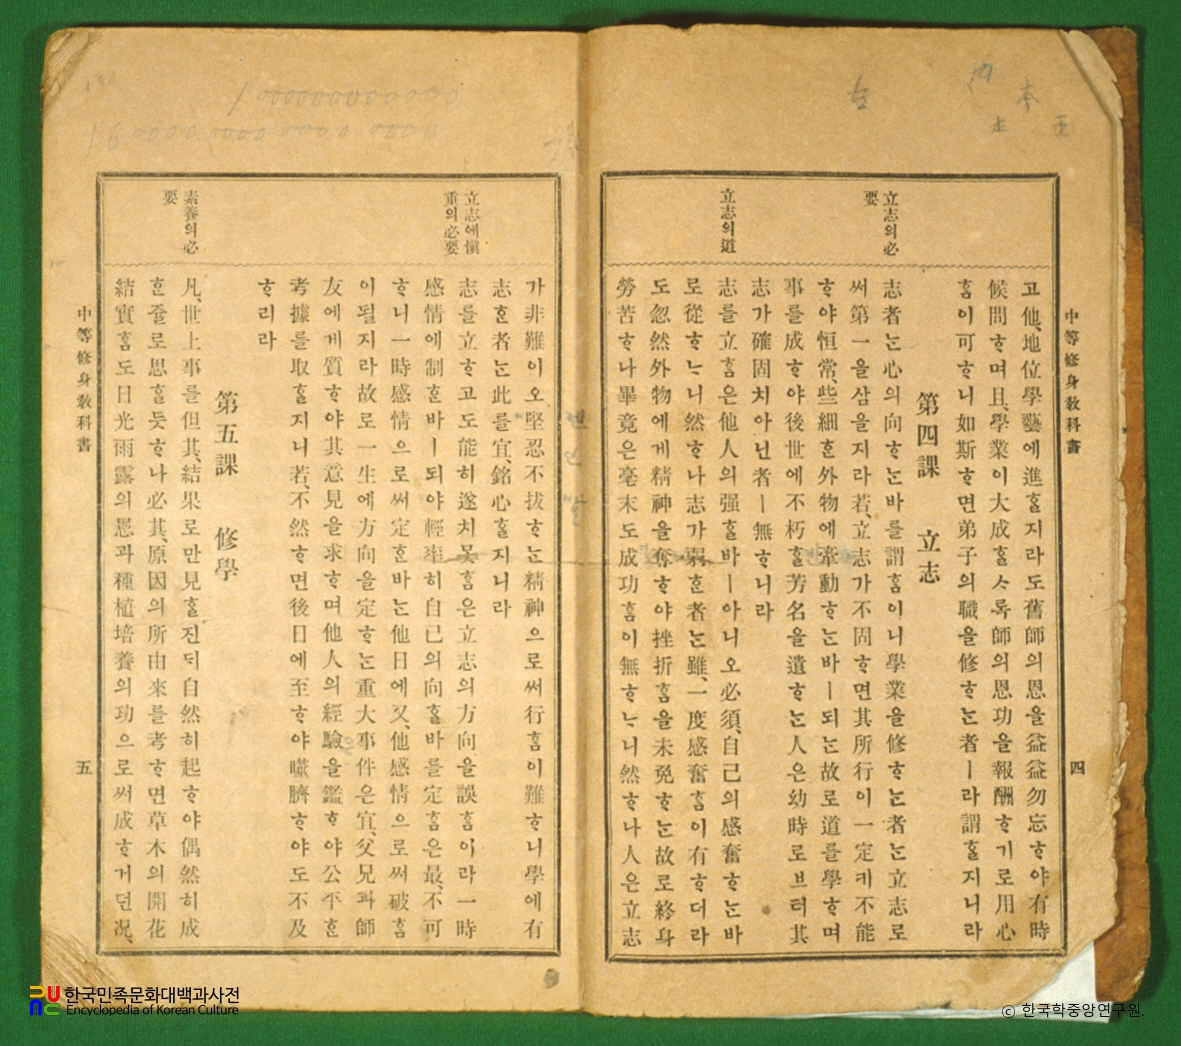 中等修身敎科書
四
고他、地位學藝에進ᄒᆞᆯ지라도舊師의恩을益益勿忘ᄒᆞ야有時
候問ᄒᆞ며且、學業이大成ᄒᆞᆯᄉᆞ록師의恩功을報酬ᄒᆞ기로用心
ᄒᆞᆷ이可ᄒᆞ니如斯ᄒᆞ면弟子의職을修ᄒᆞᄂᆞᆫ者ㅣ라謂ᄒᆞᆯ지니라
第四課 立志
立志의必
要
志者ᄂᆞᆫ心의向ᄒᆞᄂᆞᆫ바를謂ᄒᆞᆷ이니學業을修ᄒᆞᄂᆞᆫ者ᄂᆞᆫ立志로
써第一을삼을지라若、立志가不固ᄒᆞ면其所行이一定키不能
ᄒᆞ야恒常、些細ᄒᆞᆫ外物에牽動ᄒᆞᄂᆞᆫ바ㅣ되ᄂᆞᆫ故로道를學ᄒᆞ며
事를成ᄒᆞ야後世에不朽ᄒᆞᆯ芳名을遺ᄒᆞᄂᆞᆫ人은幼時로브터其
志가確固치아닌者ㅣ無ᄒᆞ니라
立志의道
志를立ᄒᆞᆷ은他人의强ᄒᆞᆯ바ㅣ아니오必須、自己의感奮ᄒᆞᄂᆞᆫ바
로從ᄒᆞᄂᆞ니然ᄒᆞ나志가弱ᄒᆞᆫ者ᄂᆞᆫ雖、一度感奮ᄒᆞᆷ이有ᄒᆞ더라
도忽然外物에게精神을奪ᄒᆞ야挫折ᄒᆞᆷ을未免ᄒᆞᄂᆞᆫ故로終身
勞苦ᄒᆞ나畢竟은毫末도成功ᄒᆞᆷ이無ᄒᆞᄂᆞ니然ᄒᆞ나人은立志
가非難이오堅忍不拔ᄒᆞᄂᆞᆫ精神으로써行ᄒᆞᆷ이難ᄒᆞ니學에有
志ᄒᆞᆫ者ᄂᆞᆫ此를宜、銘心ᄒᆞᆯ지니라
立志에愼
重의必要
志를立ᄒᆞ고도能히遂치못ᄒᆞᆷ은立志의方向을誤ᄒᆞᆷ이라一時
感情에制ᄒᆞᆫ바ㅣ되야輕率히自己의向ᄒᆞᆯ바를定ᄒᆞᆷ은最、不可
ᄒᆞ니一時感情으로써定ᄒᆞᆫ바ᄂᆞᆫ他日에又、他感情으로써破ᄒᆞᆷ
이될지라故로一生에方向을定ᄒᆞᄂᆞᆫ重大事件은宜、父兄과師
友에게質ᄒᆞ야其意見을求ᄒᆞ며他人의經驗을鑑ᄒᆞ야公平ᄒᆞᆫ
考據를取ᄒᆞᆯ지니若、不然ᄒᆞ면後日에至ᄒᆞ야噬臍ᄒᆞ야도不及
ᄒᆞ리라
第五課 修學
素養의必
要
凡、世上事를但其、結果로만見ᄒᆞᆯ진ᄃᆡ自然히起ᄒᆞ야偶然히成
ᄒᆞᆫ줄로思ᄒᆞᆯ듯ᄒᆞ나必其、原因의所由來를考ᄒᆞ면草木의開花
結實ᄒᆞᆷ도日光雨露의恩과種植培養의功으로써成ᄒᆞ거던况、
中等修身敎科書
五
한국민족문화대백과사전
Encyclopedia of Korean Culture
ⓒ 한국학중앙연구원.